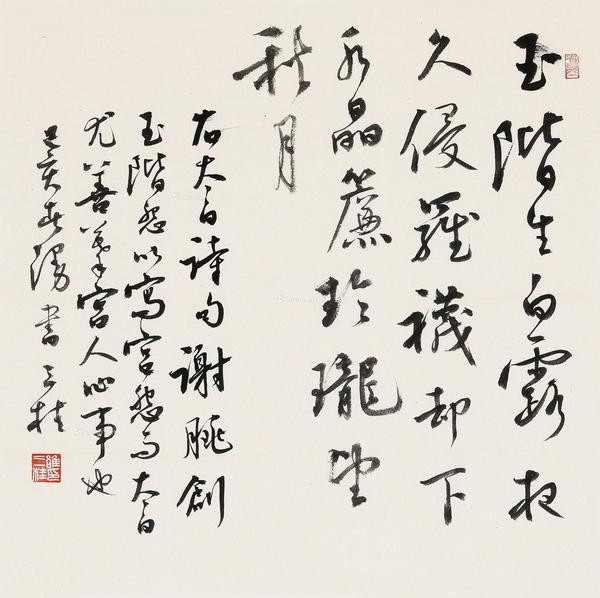 玉階生白露夜
久侵羅襪却下
水晶簾玲瓏望
秋月
右太白詩句謝朓創
玉階怨以寫宮愁而太白
尤善筆宮人心事也
書三桂